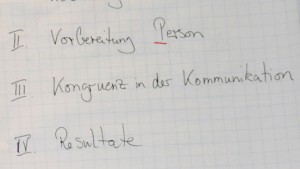 II Vorbereitung Person
III Kongruenz in der Kommunikation
IV Resultate